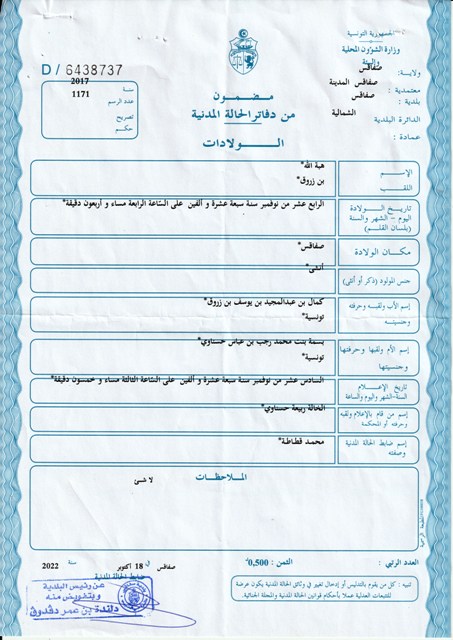 الجمهورية التونسية
وزارة الشؤون المحلية
والبيئة
ولاية: صفاقس
معتمدية: صفاقس المدينة
بلدية: صفاقس
الدائرة البلدية الشمالية
عمادة:
D / 6438737
سنة 2017
عدد الرسم 1171
تصريح
حكم
مضمون
من دفاتر الحالة المدنية
الولادات
الإسم هبة الله*
اللقب بن زروق*
تاريخ الولادة الرابع عشر من نوفمبر سنة سبعة عشرة و ألفين على الساعة الرابعة مساء و أربعون دقيقة*
اليوم - الشهر والسنة
(بلسان القلم)
مكان الولادة صفاقس*
جنس المولود (ذكر أو أنثى) أنثى*
إسم الأب ولقبه وحرفته كمال بن عبدالمجيد بن يوسف بن زروق*
وجنسيته تونسية*
إسم الأم ولقبها وحرفتها بسمة بنت محمد رجب بن عباس حسناوي*
وجنسيتها تونسية*
تاريخ الإعلام السادس عشر من نوفمبر سنة سبعة عشرة و ألفين على الساعة الثالثة مساء و خمسون دقيقة*
السنة-الشهر واليوم والساعة
إسم من قام بالإعلام ولقبه الخالة ربيعة حسناوي*
وحرفته أو المحكمة
إسم ضابط الحالة المدنية محمد قطاطة*
وصفته
الملاحظات
لا شئ
العدد الرتبي:
الثمن: 0,500د
صفاقس في 18 أكتوبر سنة 2022
ضابط الحالة المدنية
تنبيه: كل من يقوم بالتدليس أو إدخال تغيير في وثائق الحالة المدنية يكون عرضة
للتتبعات العدلية عملا بأحكام قوانين الحالة المدنية والمجلة الجنائية.
عن رئيس البلدية
وبتفويض منه